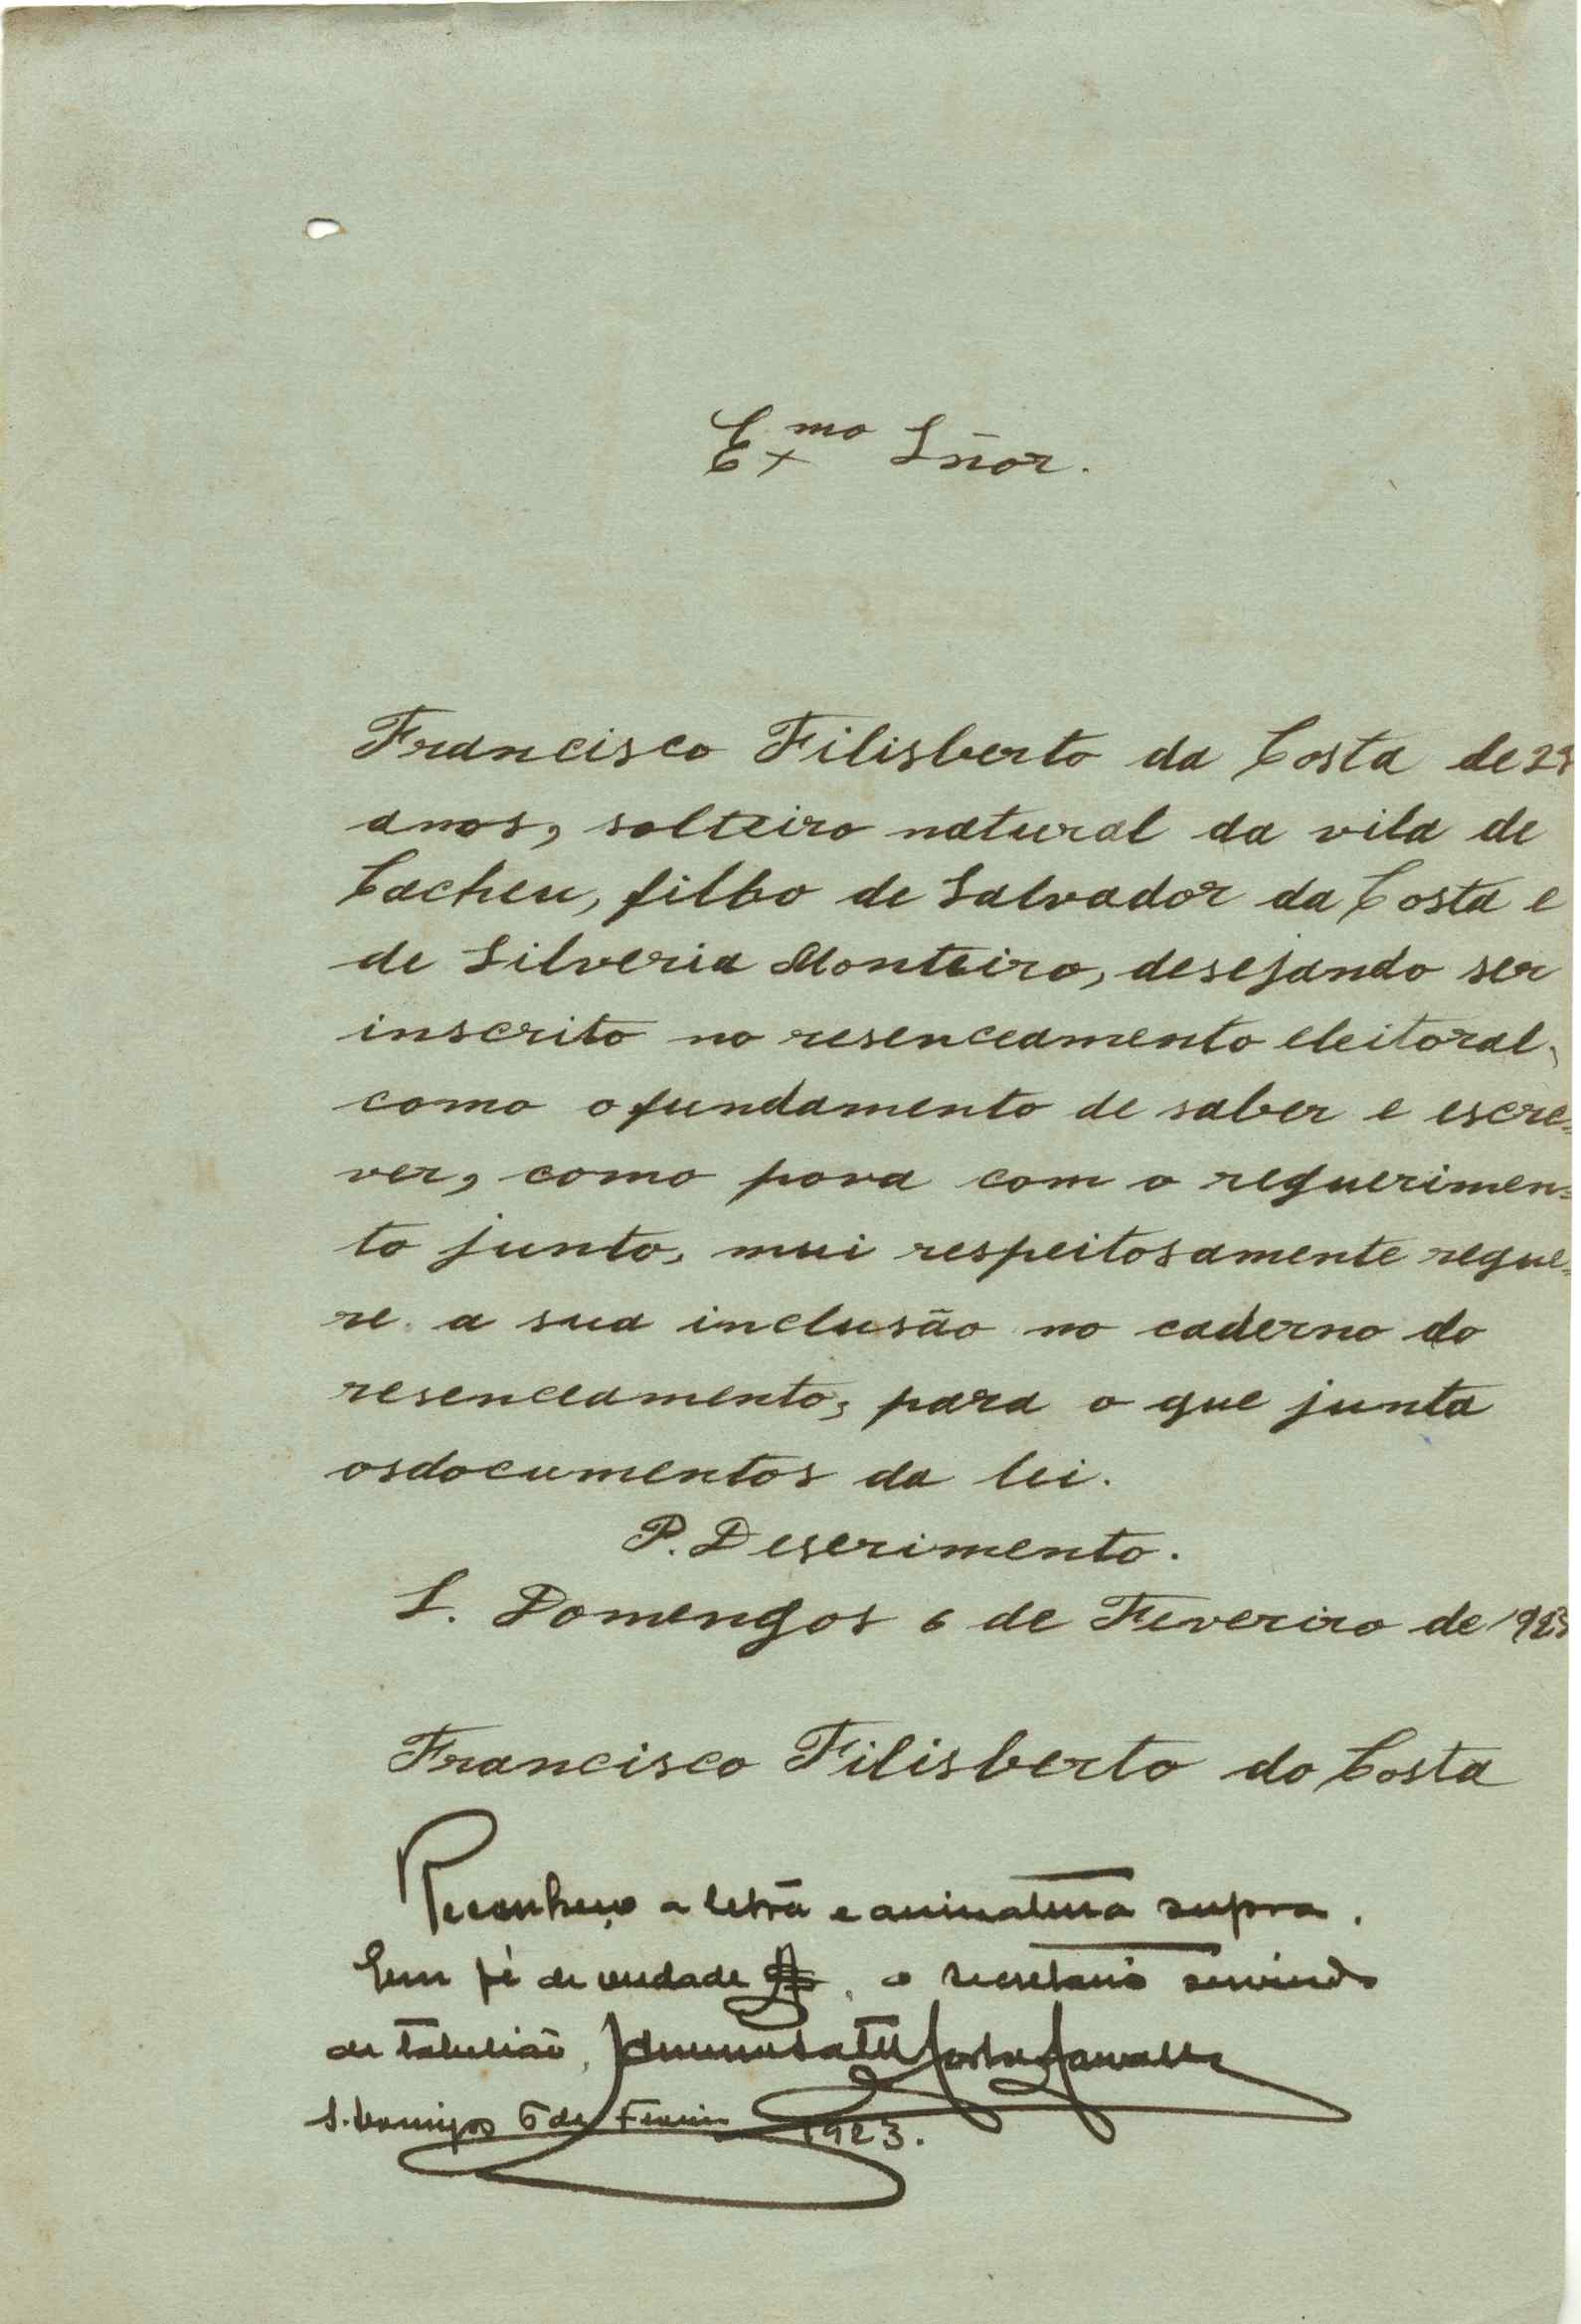 Exmo Sñor.
Francisco Filisberto da Costa de
anos, solteiro natural da vila de
Cacheu, filho de Salvador da Costa e
de Silveria Monteiro, desejando ser
inscrito no resenceamento eleitoral,
como o fundamento de saber e escre=
ver, como pova com o requerimen=
to junto, mui respeitosamente reque=
re a sua inclusão no caderno do
resenceamento, para o que junta
osdocumentos da lei.
P. Deferimento.
S. Domengos 6 de Feveriro de 1923
Francisco Filisberto do Costa
Reconheço a letra e assinatura supra.
Em fé de verdade, o secretario servindo
de tabelião,
S. Domingos 6 de 1923.